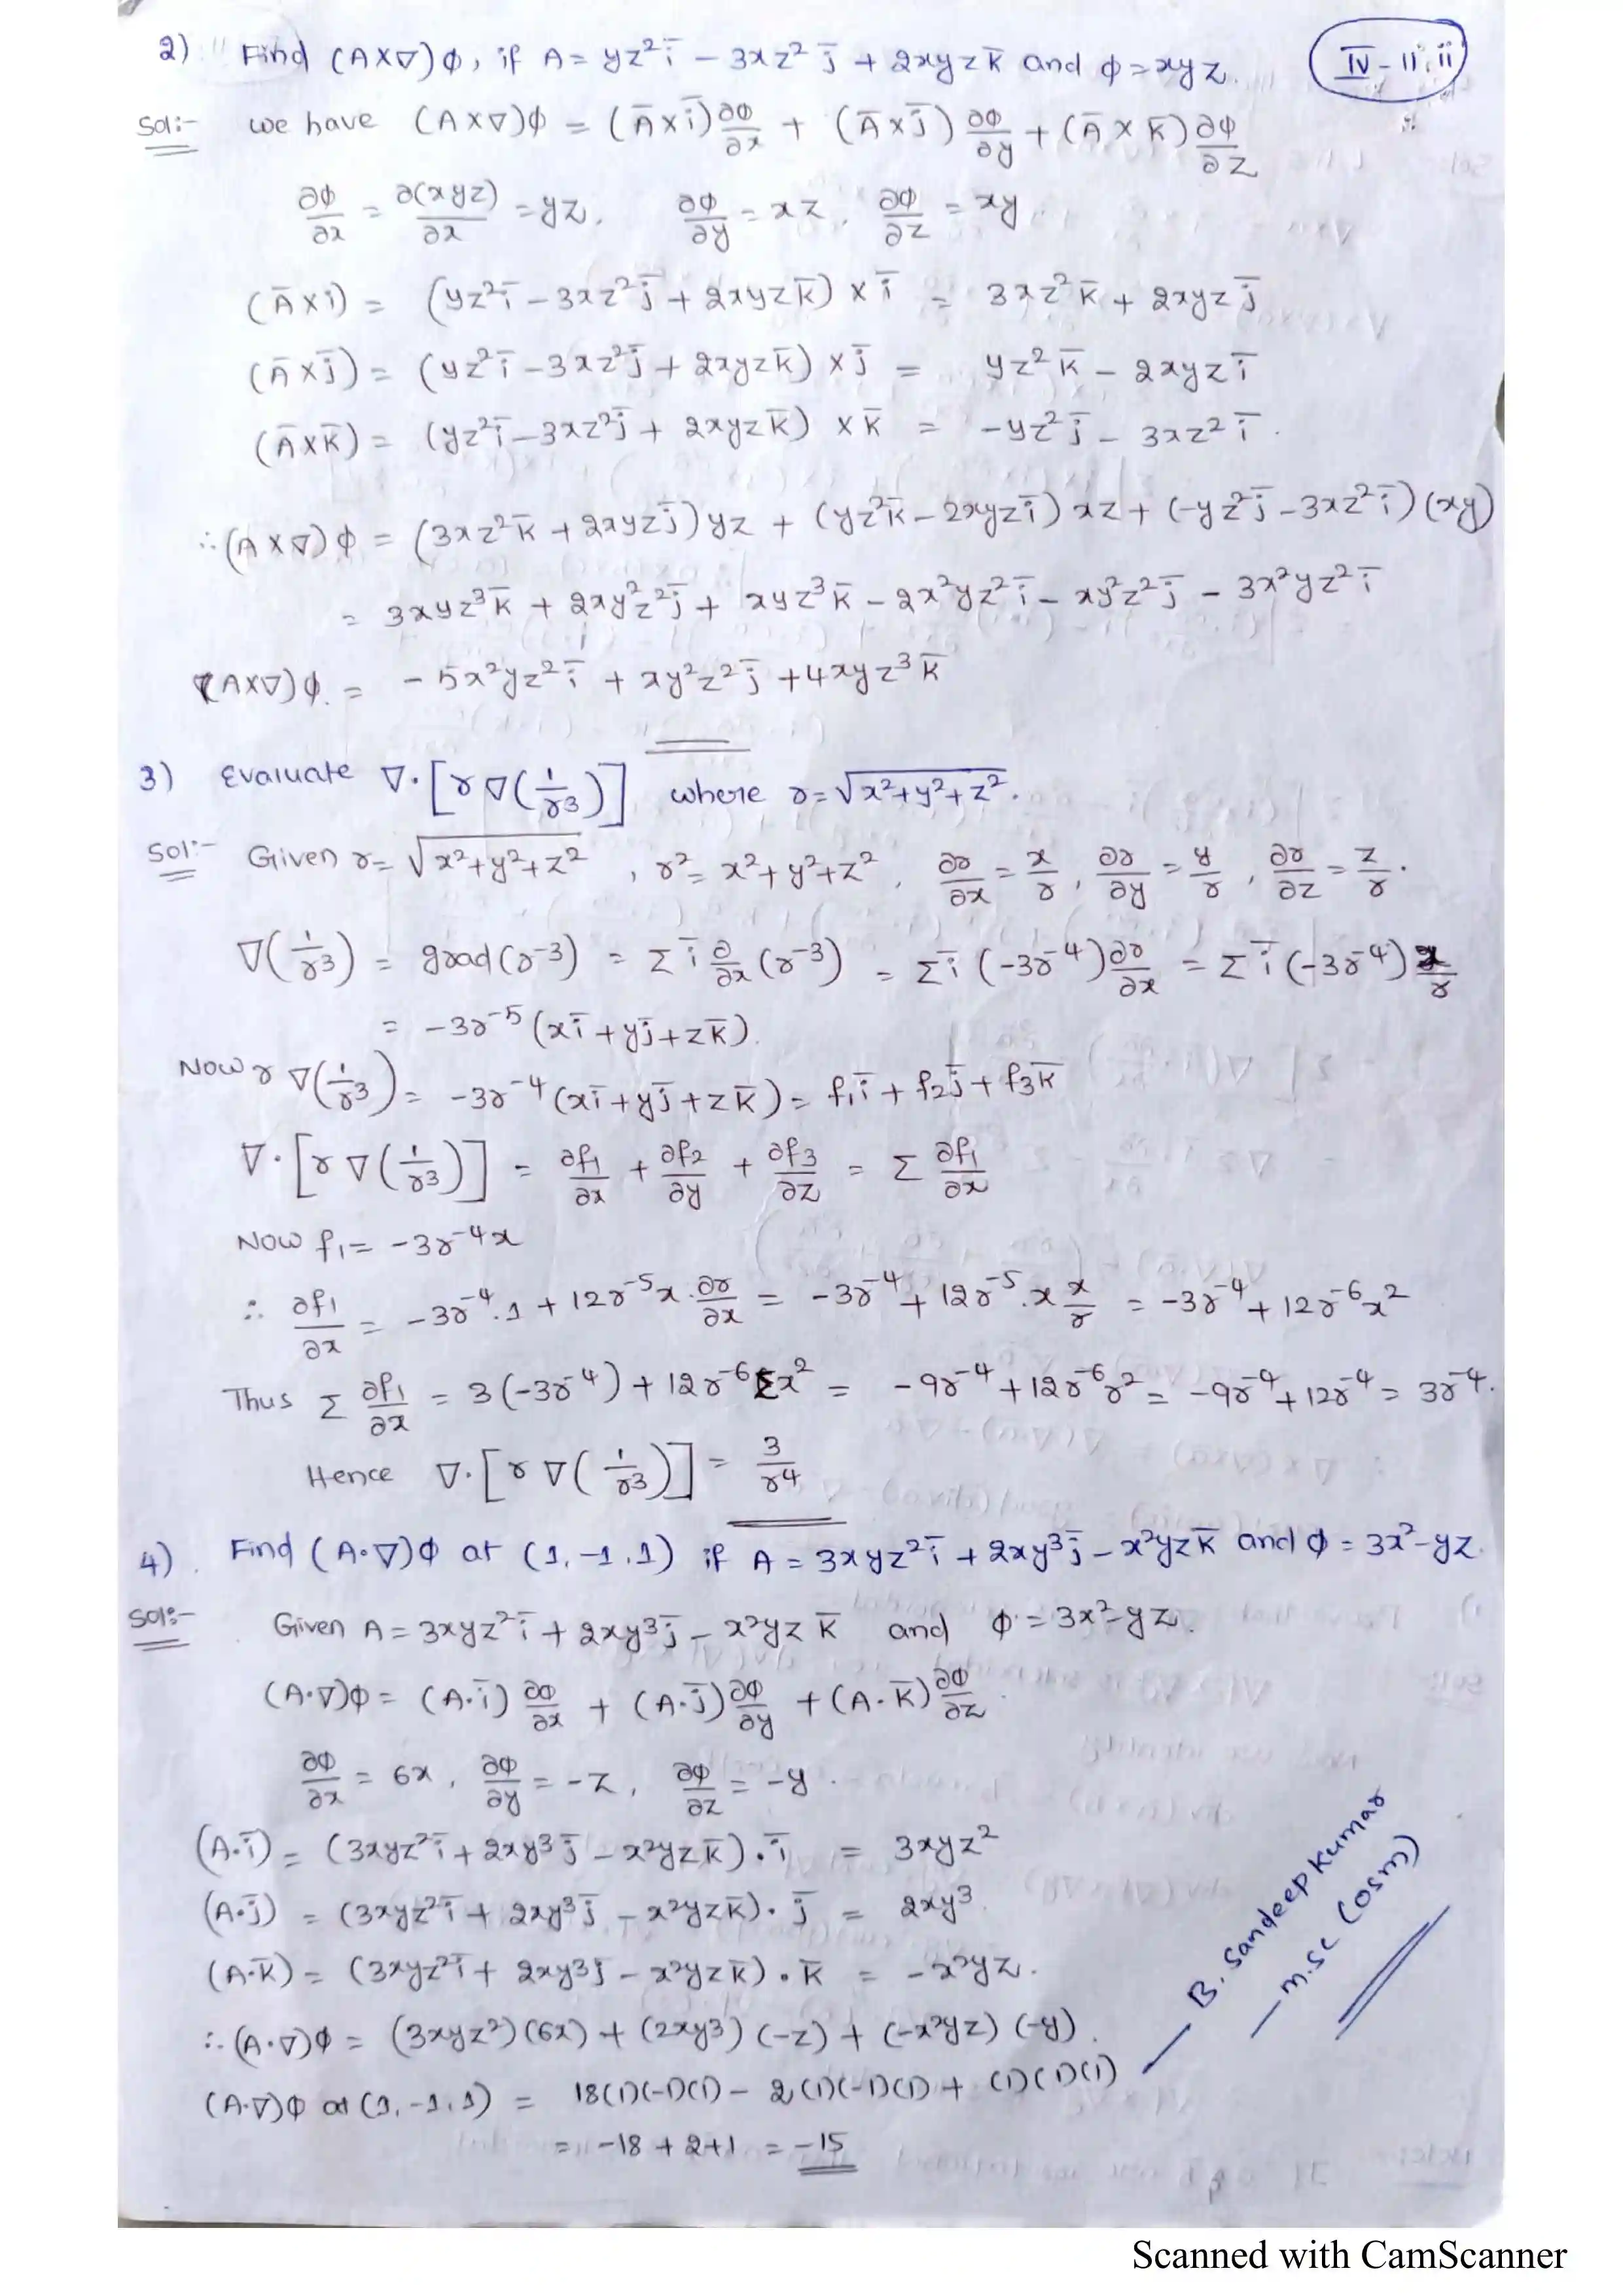 2) Find (A×∇)φ, if A = yz² i̅ − 3xz² j̅ + 2xyz k̅ and φ = xyz.
IV - 11, ii
Sol:- we have (A×∇)φ = (A̅×i̅) ∂φ/∂x + (A̅×j̅) ∂φ/∂y + (A̅×k̅) ∂φ/∂z
∂φ/∂x = ∂(xyz)/∂x = yz, ∂φ/∂y = xz, ∂φ/∂z = xy
(A̅×i) = (yz² i̅ − 3xz² j̅ + 2xyz k̅) × i̅ = 3xz² k̅ + 2xyz j̅
(A̅×j̅) = (yz² i̅ − 3xz² j̅ + 2xyz k̅) × j̅ = yz² k̅ − 2xyz i̅
(A̅×k̅) = (yz² i̅ − 3xz² j̅ + 2xyz k̅) × k̅ = −yz² j̅ − 3xz² i̅.
∴ (A×∇)φ = (3xz² k̅ + 2xyz j̅) yz + (yz² k̅ − 2xyz i̅) xz + (−yz² j̅ − 3xz² i̅)(xy)
= 3xyz³ k̅ + 2xy²z² j̅ + xyz³ k̅ − 2x²yz² i̅ − xy²z² j̅ − 3x²yz² i̅
(A×∇)φ. = −5x²yz² i̅ + xy²z² j̅ + 4xyz³ k̅
3) Evaluate ∇·[r∇(1/r3)] where r = √x²+y²+z².
Sol:- Given r = √x²+y²+z², r² = x²+y²+z², ∂r/∂x = x/r, ∂r/∂y = y/r, ∂r/∂z = z/r.
∇(1/r3) = grad(r⁻³) = Σ i̅ ∂/∂x (r⁻³) = Σ i̅ (−3r⁻⁴) ∂r/∂x = Σ i̅ (−3r⁻⁴) x/r
= −3r⁻⁵ (x i̅ + y j̅ + z k̅).
Now r∇(1/r3) = −3r⁻⁴ (x i̅ + y j̅ + z k̅) = f₁ i̅ + f₂ j̅ + f₃ k̅
∇·[r∇(1/r3)] = ∂f₁/∂x + ∂f₂/∂y + ∂f₃/∂z = Σ ∂f₁/∂x
Now f₁ = −3r⁻⁴x
∴ ∂f₁/∂x = −3r⁻⁴.1 + 12r⁻⁵x.∂r/∂x = −3r⁻⁴ + 12r⁻⁵.x x/r = −3r⁻⁴ + 12r⁻⁶x²
Thus Σ ∂f₁/∂x = 3(−3r⁻⁴) + 12r⁻⁶Σx² = −9r⁻⁴ + 12r⁻⁶r² = −9r⁻⁴ + 12r⁻⁴ = 3r⁻⁴.
Hence ∇·[r∇(1/r3)] = 3/r4
4). Find (A·∇)φ at (1, −1, 1) if A = 3xyz² i̅ + 2xy³ j̅ − x²yz k̅ and φ = 3x²−yz.
Sol:- Given A = 3xyz² i̅ + 2xy³ j̅ − x²yz k̅ and φ = 3x²−yz.
(A·∇)φ = (A·i̅) ∂φ/∂x + (A·j̅) ∂φ/∂y + (A·k̅) ∂φ/∂z.
∂φ/∂x = 6x, ∂φ/∂y = −z, ∂φ/∂z = −y.
(A·i̅) = (3xyz² i̅ + 2xy³ j̅ − x²yz k̅)·i̅ = 3xyz²
(A·j̅) = (3xyz² i̅ + 2xy³ j̅ − x²yz k̅)·j̅ = 2xy³.
(A·k̅) = (3xyz² i̅ + 2xy³ j̅ − x²yz k̅)·k̅ = −x²yz.
∴ (A·∇)φ = (3xyz²)(6x) + (2xy³)(−z) + (−x²yz)(−y).
(A·∇)φ at (1, −1, 1) = 18(1)(−1)(1) − 2(1)(−1)(1) + (1)(1)(1)
= −18 + 2+1 = −15
— B. Sandeep Kumar
— M.Sc (osm)
Scanned with CamScanner